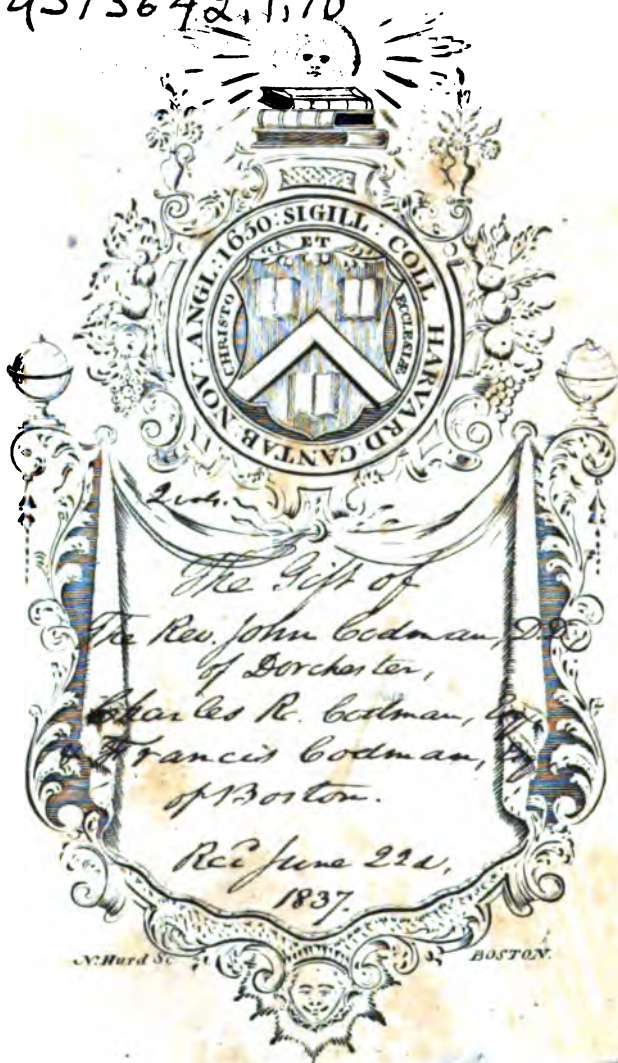 SIGILL : COLL HARVARD CANTAB : NOV ANGL : 1650 :
CHRISTO ET ECCLESIÆ
2 vols.
The Gift of
The Rev. John Codman, D.D.
of Dorchester,
Charles R. Codman, Esq.
& Francis Codman, Esq.
of Boston.
Rec'd June 22d,
1837.
N. Hurd Sc
BOSTON.